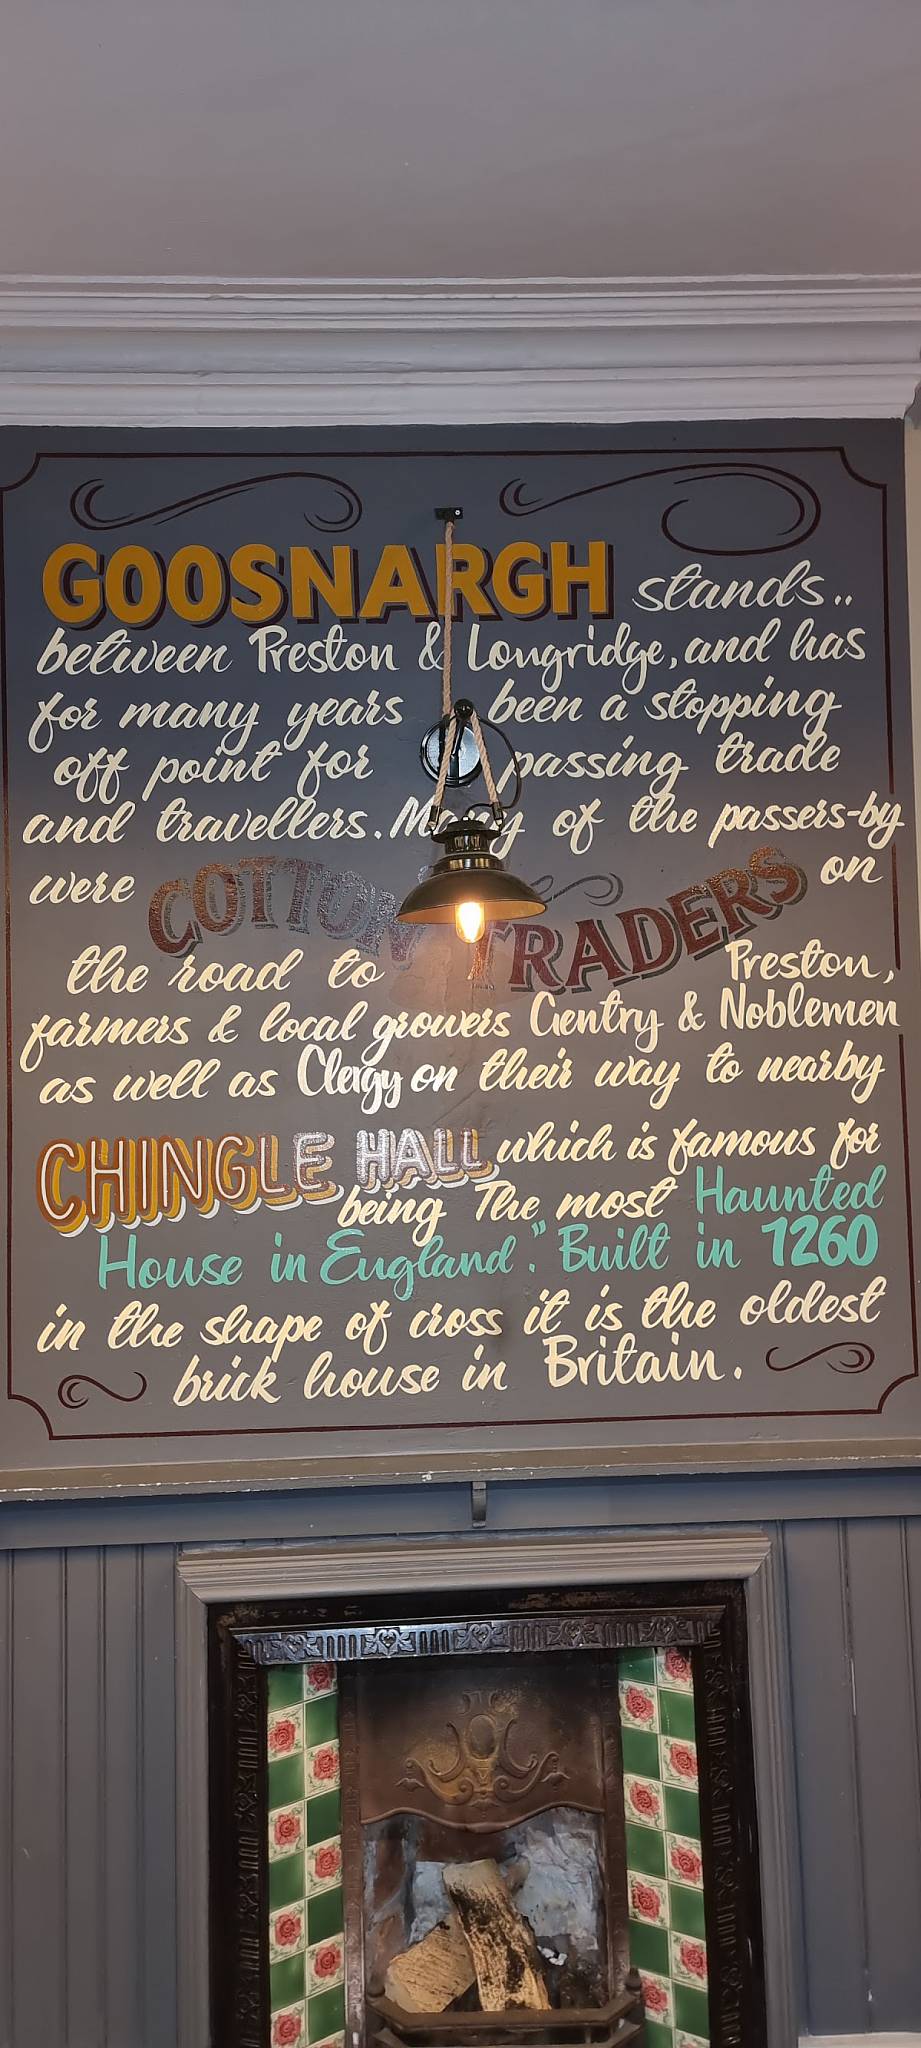 GOOSNARGH stands..
between Preston & Longridge, and has
for many years been a stopping
off point for passing trade
and travellers. Many of the passers-by
were COTTON TRADERS on
the road to Preston,
farmers & local growers Gentry & Noblemen
as well as Clergy on their way to nearby
CHINGLE HALL which is famous for
being The most Haunted
House in England". Built in 1260
in the shape of cross it is the oldest
brick house in Britain.